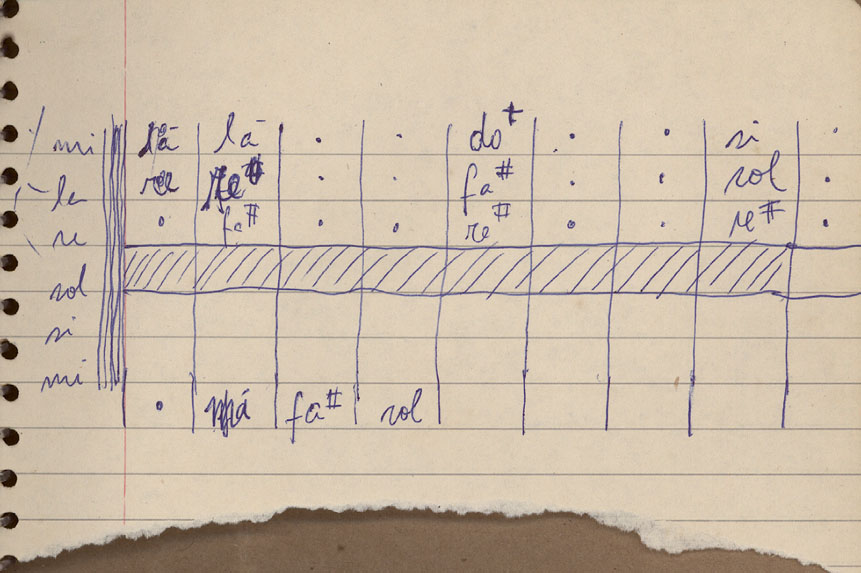 mi lā lā · · do+ · · si ·
la re re# · · fa# · · sol ·
re · fa# · · re# · · re# ·
sol
si
mi
· má fa# sol